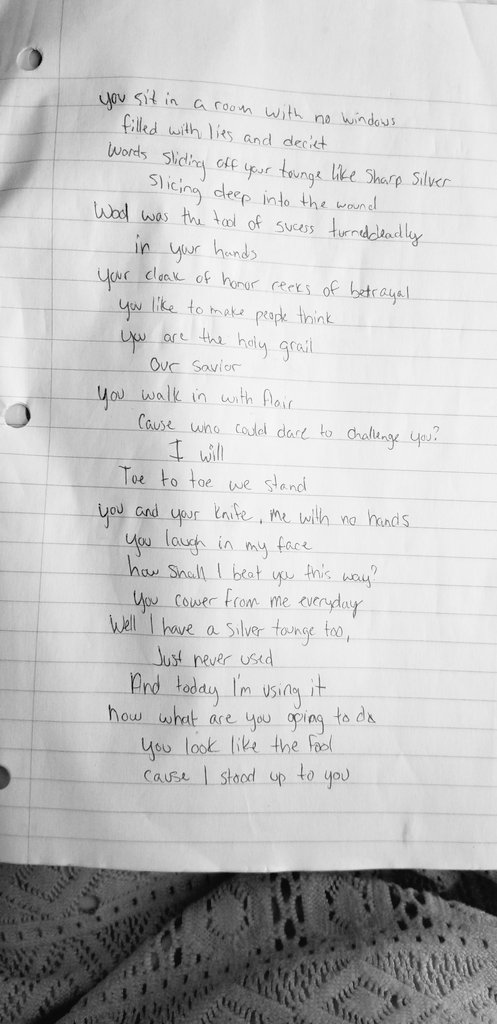 you sit in a room with no windows
filled with lies and deciet
words sliding off your tounge like sharp silver
slicing deep into the wound
Wool was the tool of sucess turned deadly
in your hands
your cloak of honor reeks of betrayal
you like to make people think
you are the holy grail
our savior
you walk in with flair
cause who could dare to challenge you?
I will
Toe to toe we stand
you and your knife, me with no hands
you laugh in my face
how shall I beat you this way?
you cower from me everyday
Well I have a silver tounge too,
Just never used
And today I'm using it
now what are you going to do
you look like the fool
cause I stood up to you